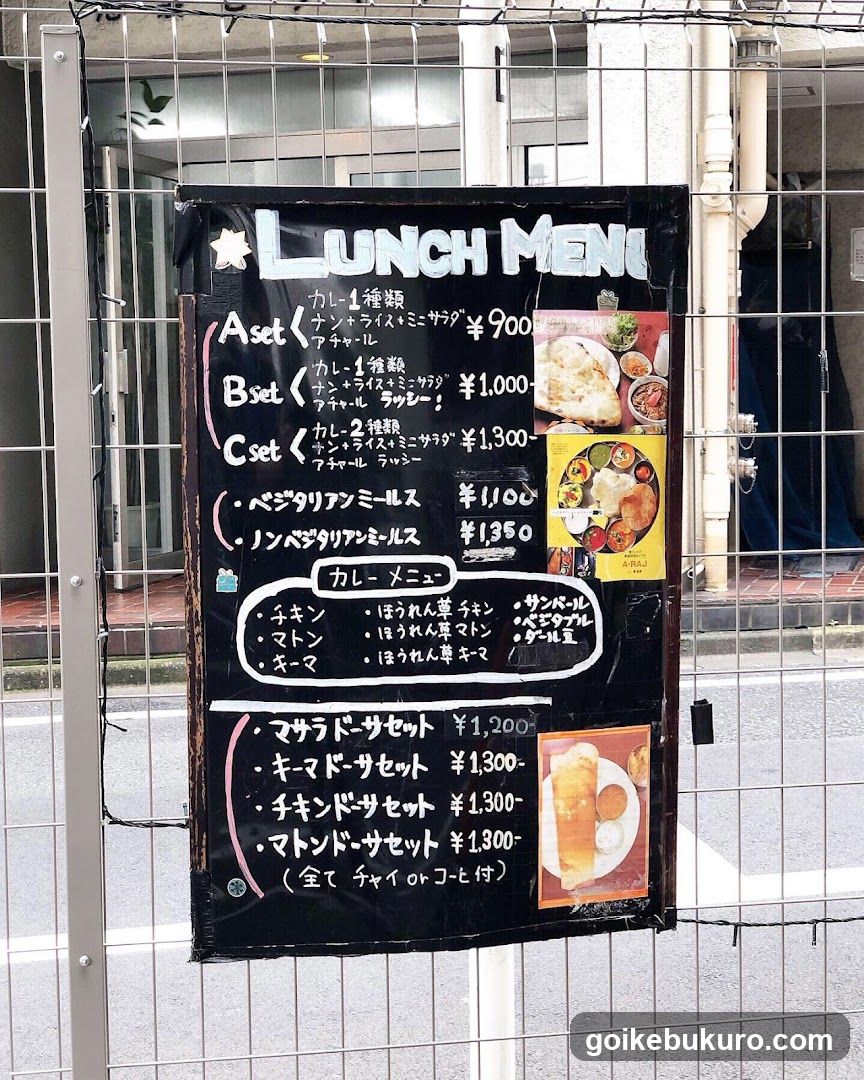 LUNCH MENU
カレー1種類
A set ナン+ライス+ミニサラダ ¥900
アチャール
カレー1種類
B set ナン+ライス+ミニサラダ ¥1,000-
アチャール ラッシー!
カレー2種類
C set ナン+ライス+ミニサラダ ¥1,300-
アチャール ラッシー
・ベジタリアンミールス ¥1,100
・ノンベジタリアンミールス ¥1,350
カレーメニュー
・チキン ・ほうれん草チキン ・サンバール
・マトン ・ほうれん草マトン ・ベジタブル
・キーマ ・ほうれん草キーマ ・ダール豆
・マサラドーサセット ¥1,200-
・キーマドーサセット ¥1,300-
・チキンドーサセット ¥1,300-
・マトンドーサセット ¥1,300-
(全て チャイorコーヒ付)
A・RAJ
goikebukuro.com